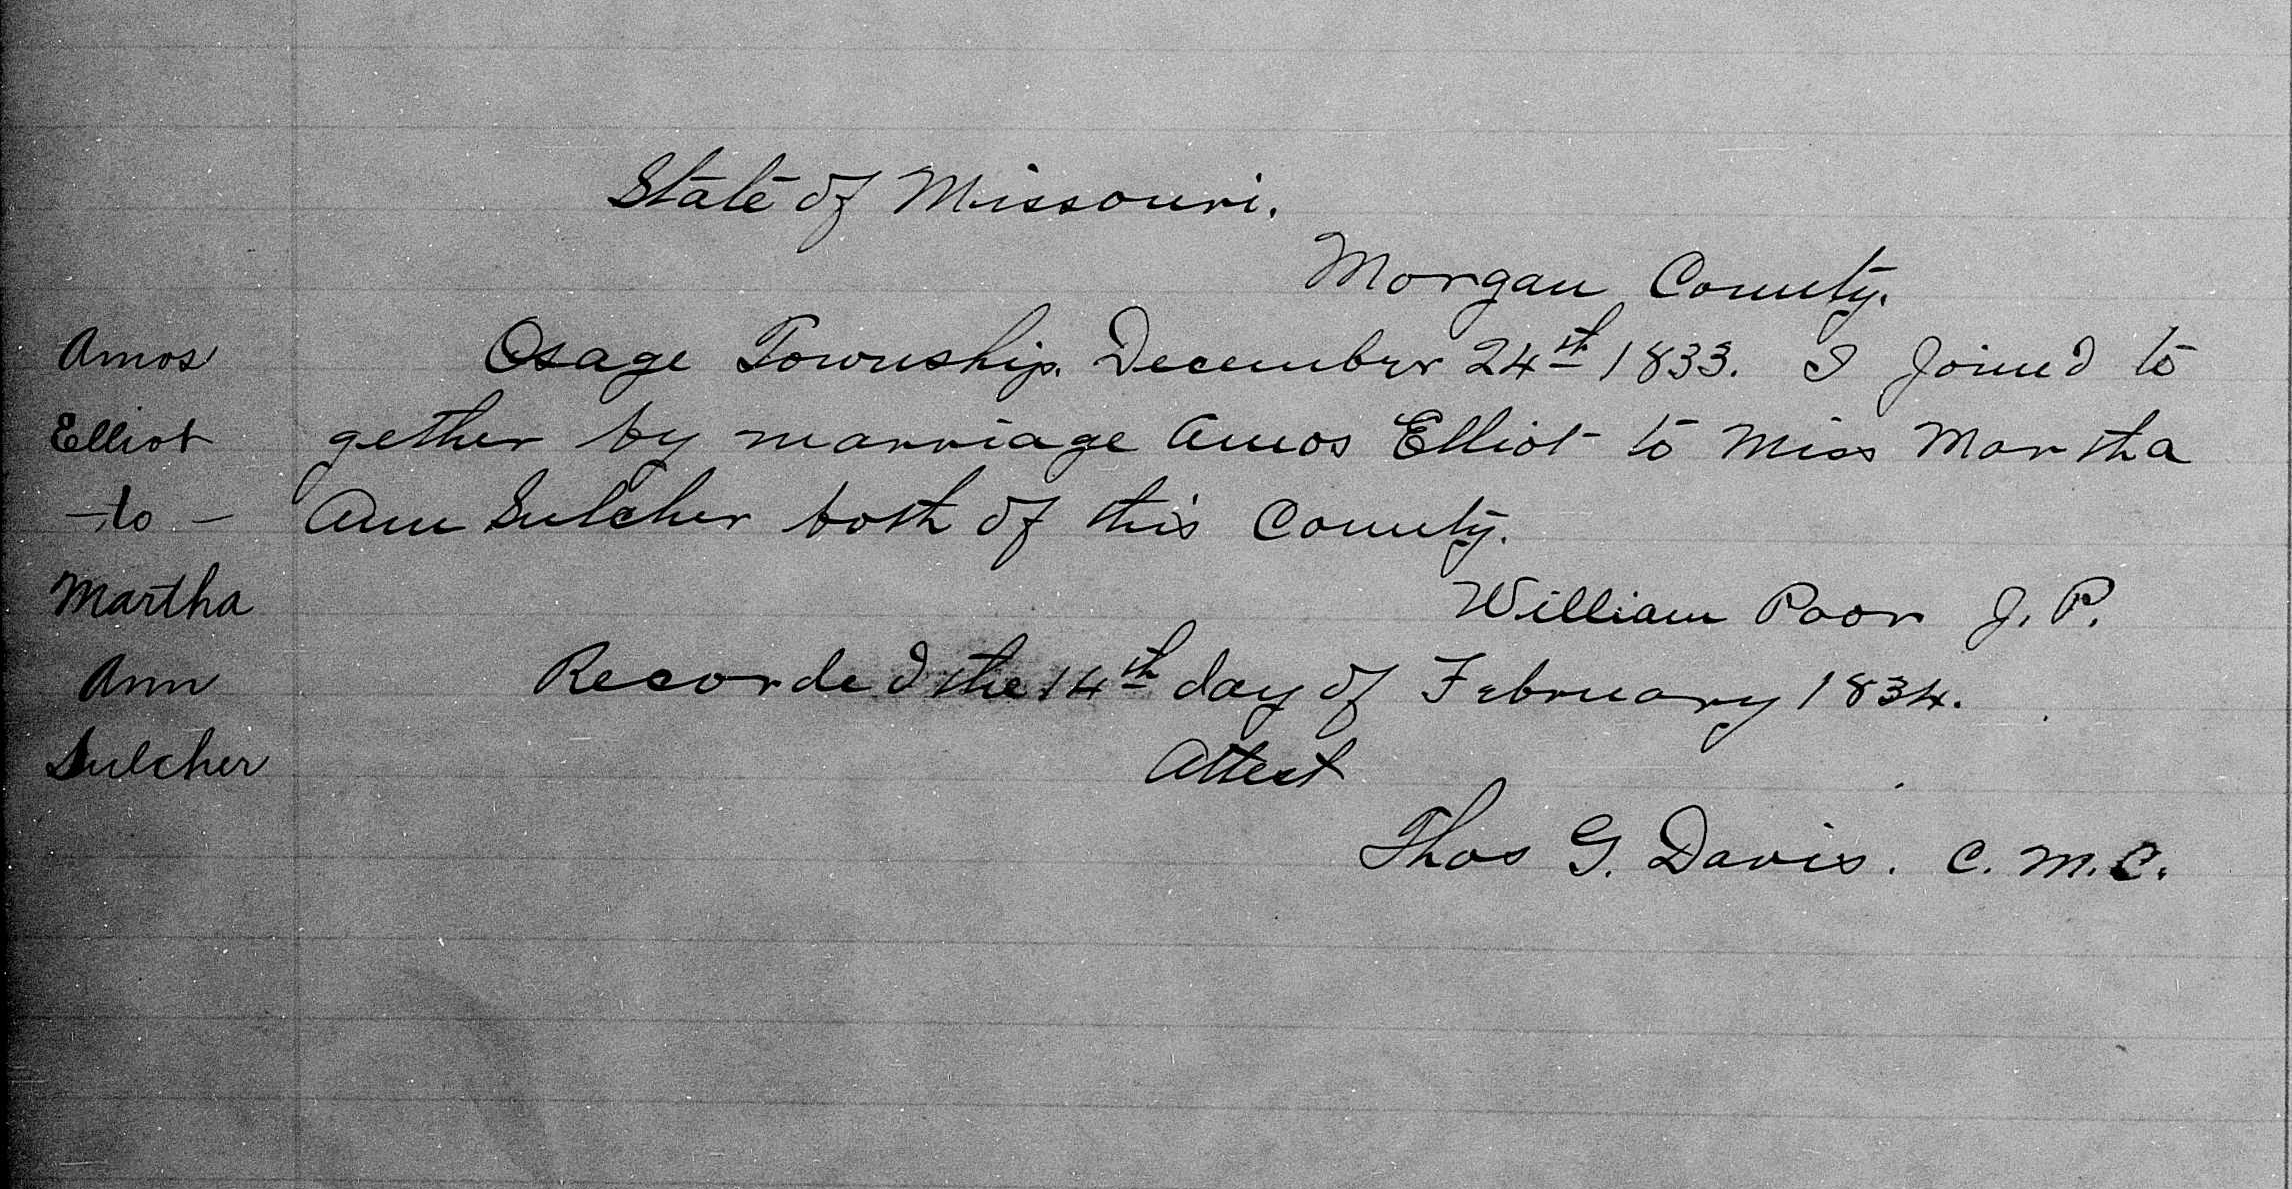 State of Missouri.
Morgan County.
Amos
Osage Township. December 24th 1833. I Joined to
Elliot
gether by marriage Amos Elliot to Miss Martha
-to-
Ann Sulcher both of this County.
Martha
William Poor J. P.
Ann
Recorded the 14th day of February 1834.
Sulcher
Attest
Thos G. Davis. C. M. C.